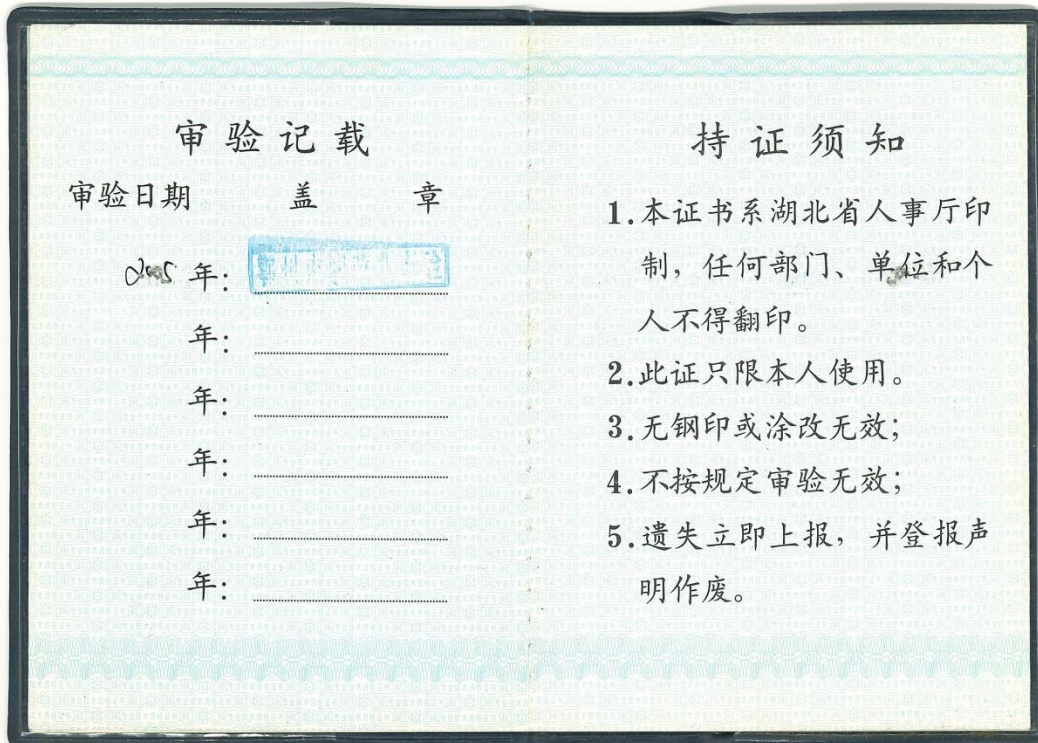 审验记载
审验日期 盖 章
2005 年:
年:
年:
年:
年:
年:
持证须知
1.本证书系湖北省人事厅印
制，任何部门、单位和个
人不得翻印。
2.此证只限本人使用。
3.无钢印或涂改无效；
4.不按规定审验无效；
5.遗失立即上报，并登报声
明作废。